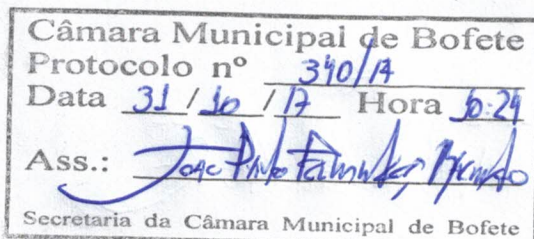 Câmara Municipal de Bofete
Protocolo nº 340/17
Data 31 / 10 / 17 Hora 10:24
Ass.:
Secretaria da Câmara Municipal de Bofete